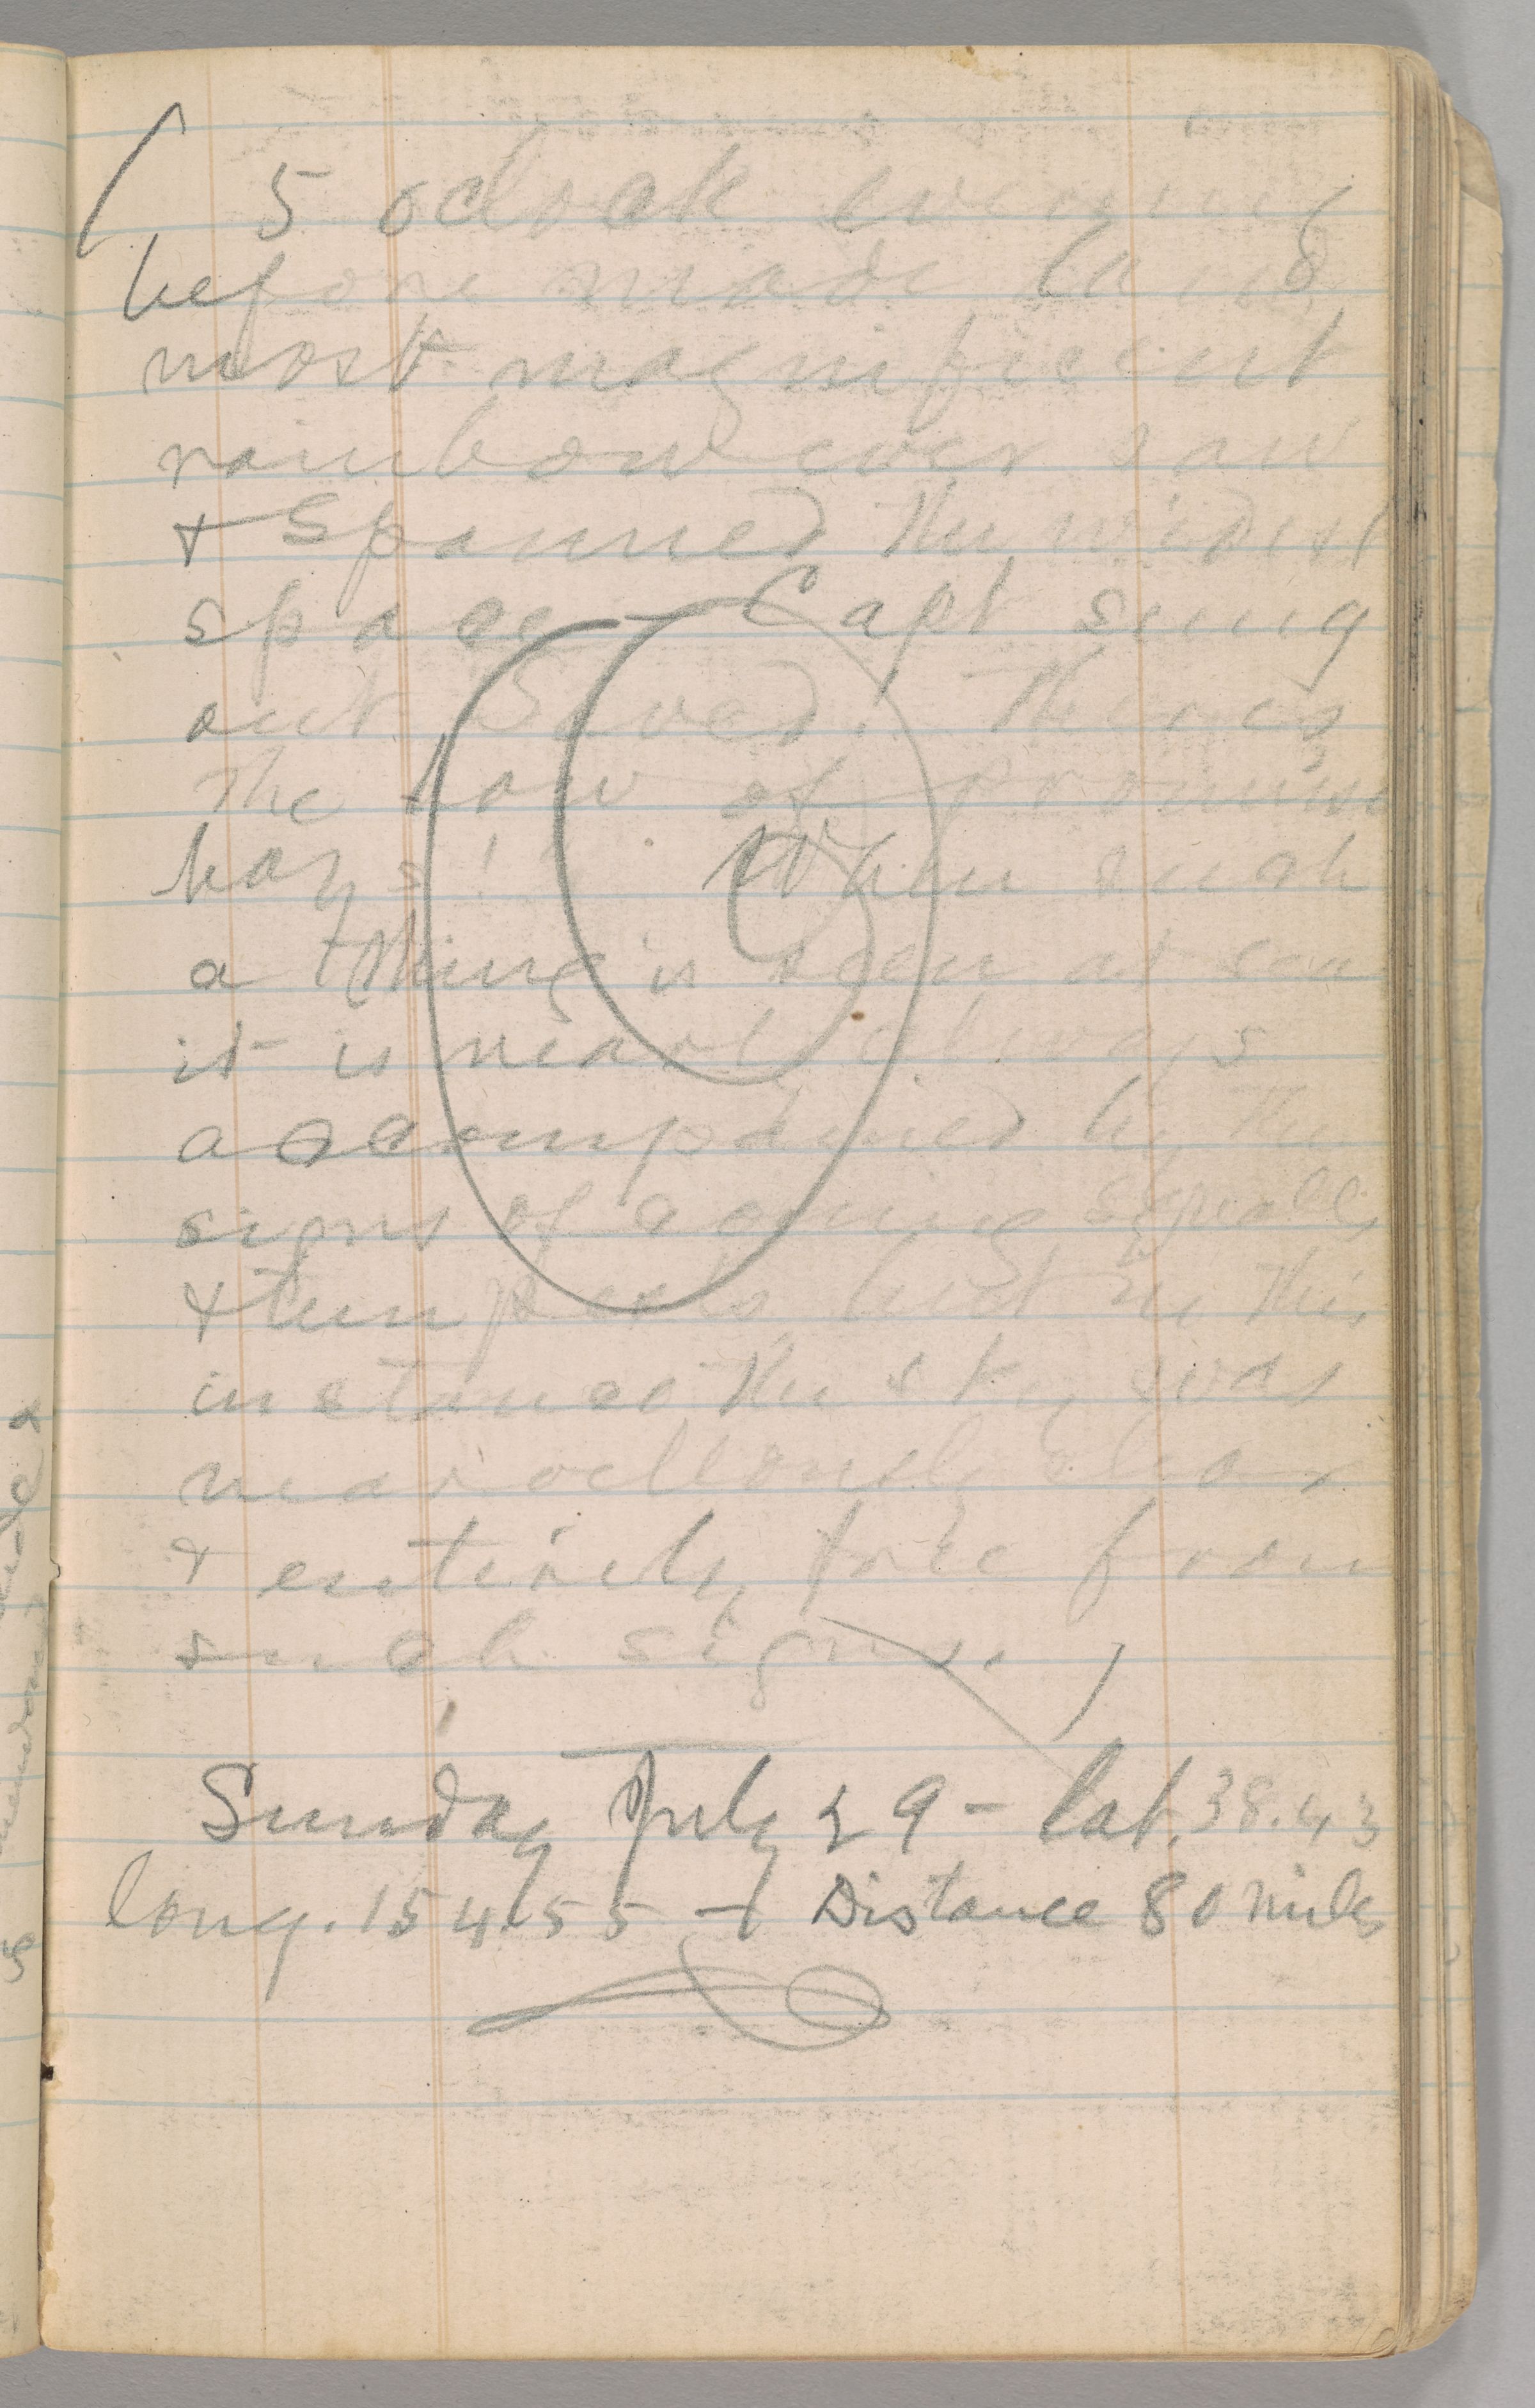 ( 5 oclock evening
before made land
most magnificent
rainbow ever saw
& spanned the widest
space — Capt sung
out Saved! There's
the bow of promise
boys! When such
a thing is seen at sea
it is nearly always
accompanied by the
signs of coming squalls
& tempests but in this
instance the sky was
marvellously clear
& entirely free from
such signs. )
Sunday July 29 - lat. 38.43
long. 154.55 — Distance 80 miles